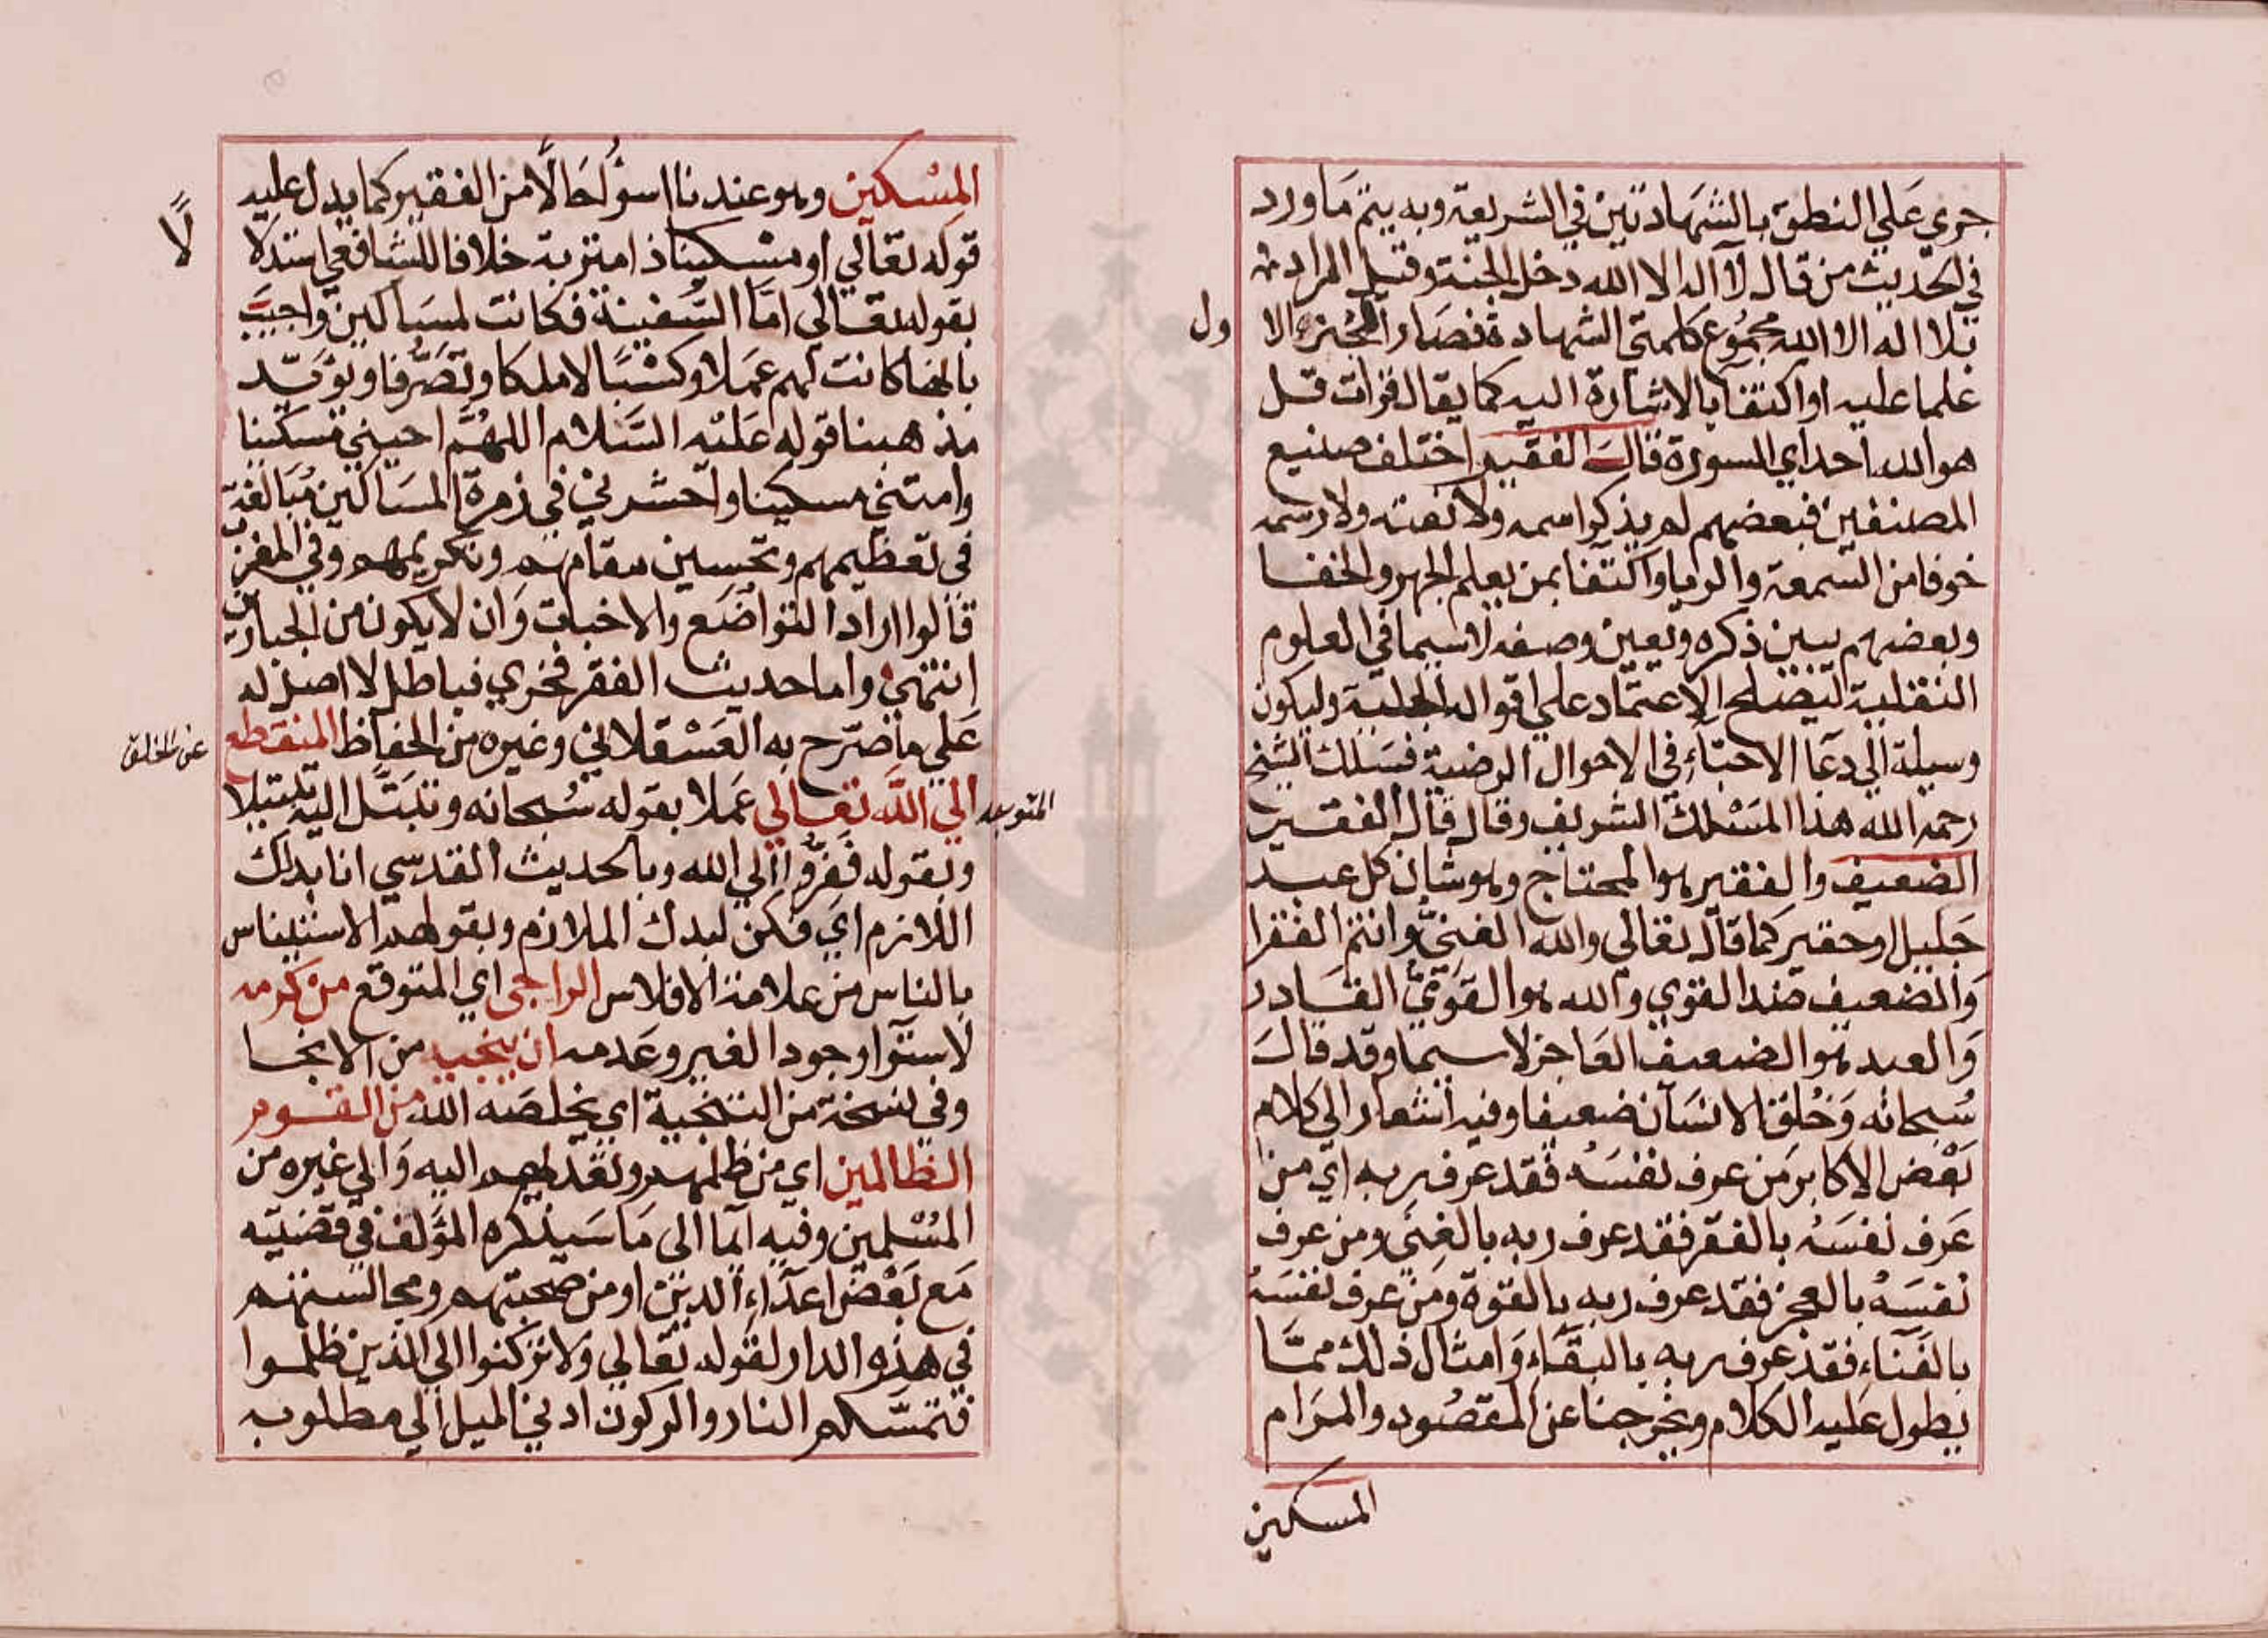 جرى علي النطق بالشهادتين في الشريعة وبه يتم ما ورد
في الحديث من قال لا اله الا الله دخل الجنة وقيل المراد
بلا اله الا الله مجموع كلمتي الشهادة فصار الجزء الا
ول
علما عليه او اكتفا بالاشارة اليه كما يقال قرات قل
هو الله احد اي السورة قال الفقير اختلف صنيع
المصنفين فبعضهم لم يذكر اسمه ولا نعته ولا رسمه
خوفا من السمعة والريا واكتفا بمن يعلم الجهر والخفا
وبعضهم يبين ذكره ويعين وصفه لا سيما في العلوم
النقلية ليصلح الاعتماد علي اقواله الجلية وليكون
وسيلة الي دعا الاحباء في الاحوال الرضية فسلك الشيخ
رحمه الله هذا المسلك الشريف وقال قال الفقير
الضعيف والفقير هو المحتاج وهو شان كل عبد
جليل او حقير كما قال تعالي والله الغني وانتم الفقرا
والضعيف ضد القوي والله هو القوي القادر
والعبد هو الضعيف العاجز لا سيما وقد قال
سبحانه وخلق الانسان ضعيفا وفيه اشعار الي كلام
بعض الاكابر من عرف نفسه فقد عرف ربه اي من
عرف نفسه بالفقر فقد عرف ربه بالغني ومن عرف
نفسه بالعجز فقد عرف ربه بالقوة ومن عرف نفسه
بالفناء فقد عرف ربه بالبقاء وامثال ذلك مما
يطول عليه الكلام ويخرجنا عن المقصود والمرام
المسكين
المسكين وهو عندنا اسؤ حالا من الفقير كما يدل عليه
قوله تعالي او مسكينا ذا متربة خلافا للشافعي استدلا
لًا
بقوله تعالي اما السفينة فكانت لمساكين واجيب
بانها كانت لهم عملا وكسبا لا ملكا وتصرفا ويؤيد
مذهبنا قوله عليه السلام اللهم احيني مسكينا
وامتني مسكينا واحشرني في زمرة المساكين مبالغة
في تعظيمهم وتحسين مقامهم وتكريمهم وفي المغرب
قالوا اراد التواضع والاخبات وان لا يكون من الجبارين
انتهي واما حديث الفقر فخري فباطل لا اصل له
علي ما صرح به العسقلاني وغيره من الحفاظ المنقطع
عن الخلق
المتوجه
الي الله تعالي عملا بقوله سبحانه وتبتل اليه تبتيلا
وبقوله ففروا الي الله وبالحديث القدسي انا بدك
اللازم اي فكن لبدك الملازم وبقولهم الاستيناس
بالناس من علامة الافلاس الراجى اي المتوقع من كرمه
لاستوا وجود الغير وعدمه ان ينجيه من الانجا
وفي نسخة من التنجية اي يخلصه الله من القوم
الظالمين اي من ظلمهم وتعديهم اليه والي غيره من
المسلمين وفيه ايما الى ما سيذكره المؤلف في قضيته
مع بعض اعداء الدين او من صحبتهم ومجالستهم
في هذه الدار لقوله تعالي ولا تركنوا الي الذين ظلموا
فتمسكم النار والركون ادني الميل الي مطلوبه